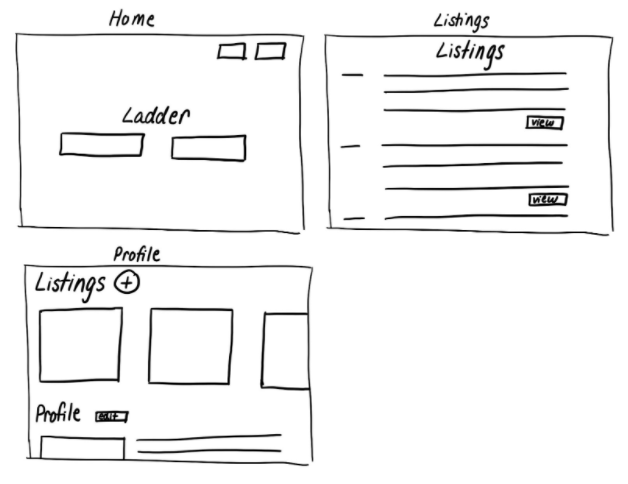 Home
Ladder
Listings
Listings
view
view
Profile
Listings +
Profile edit